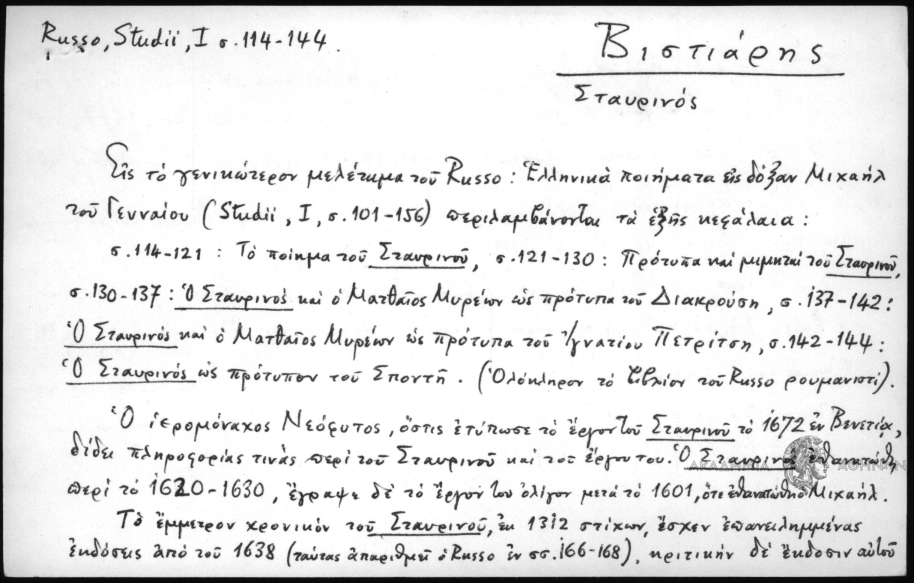 Russo, Studii, I σ.114-144.
Βιστιάρης
Σταυρινός
Εἰς τὸ γενικώτερον μελέτημα τοῦ Russo: Ἑλληνικὰ ποιήματα εἰς δόξαν Μιχαὴλ
τοῦ Γενναίου (Studii, I, σ.101-156) περιλαμβάνονται τὰ ἑξῆς κεφάλαια:
σ.114-121: Τὸ ποίημα τοῦ Σταυρινοῦ, σ.121-130: Πρότυπα καὶ μιμηταὶ τοῦ Σταυρινοῦ,
σ.130-137: Ὁ Σταυρινὸς καὶ ὁ Ματθαῖος Μυρέων ὡς πρότυπα τοῦ Διακρούση, σ.137-142:
Ὁ Σταυρινὸς καὶ ὁ Ματθαῖος Μυρέων ὡς πρότυπα τοῦ Ἰγνατίου Πετρίτση, σ.142-144:
Ὁ Σταυρινὸς ὡς πρότυπον τοῦ Σποντῆ. (Ὁλόκληρον τὸ βιβλίον τοῦ Russo ρουμανιστί).
Ὁ ἱερομόναχος Νεόφυτος, ὅστις ἐτύπωσε τὸ ἔργον τοῦ Σταυρινοῦ τὸ 1672 ἐν Βενετίᾳ,
δίδει πληροφορίας τινὰς περὶ τοῦ Σταυρινοῦ καὶ τοῦ ἔργου του. Ὁ Σταυρινὸς ἐθανατώθη
περὶ τὸ 1620-1630, ἔγραψε δὲ τὸ ἔργον του ὀλίγον μετὰ τὸ 1601, ὅτε ἐθανατώθη ὁ Μιχαήλ.
Τὸ ἔμμετρον χρονικὸν τοῦ Σταυρινοῦ, ἐκ 1312 στίχων, ἔσχεν ἐπανειλημμένας
ἐκδόσεις ἀπὸ τοῦ 1638 (ταύτας ἀπαριθμεῖ ὁ Russo ἐν σσ.166-168), κριτικὴν δὲ ἔκδοσιν αὐτοῦ
ΑΚΑΔΗΜΙΑ ΑΘΗΝΩΝ